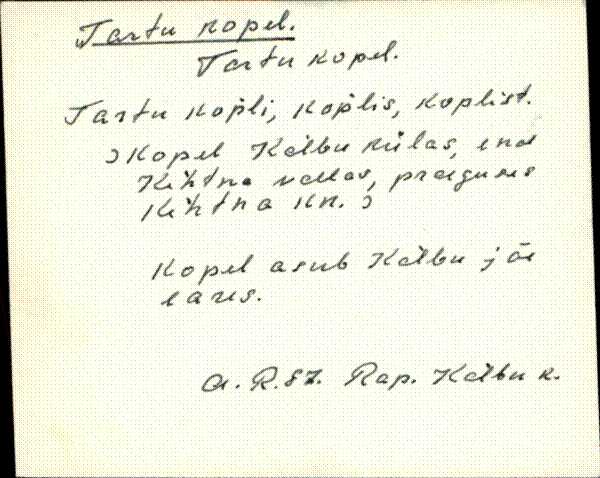 Tartu kopel.
Tartu kopel.
Tartu kopli, koplis, koplist.
Kopel Kälbu külas, end
Kehtna vallas, praeguses
Kehtna kn.
Kopel asub Kälbu jõe
ääres.
A. R. 87. Rap. Kälbu k.